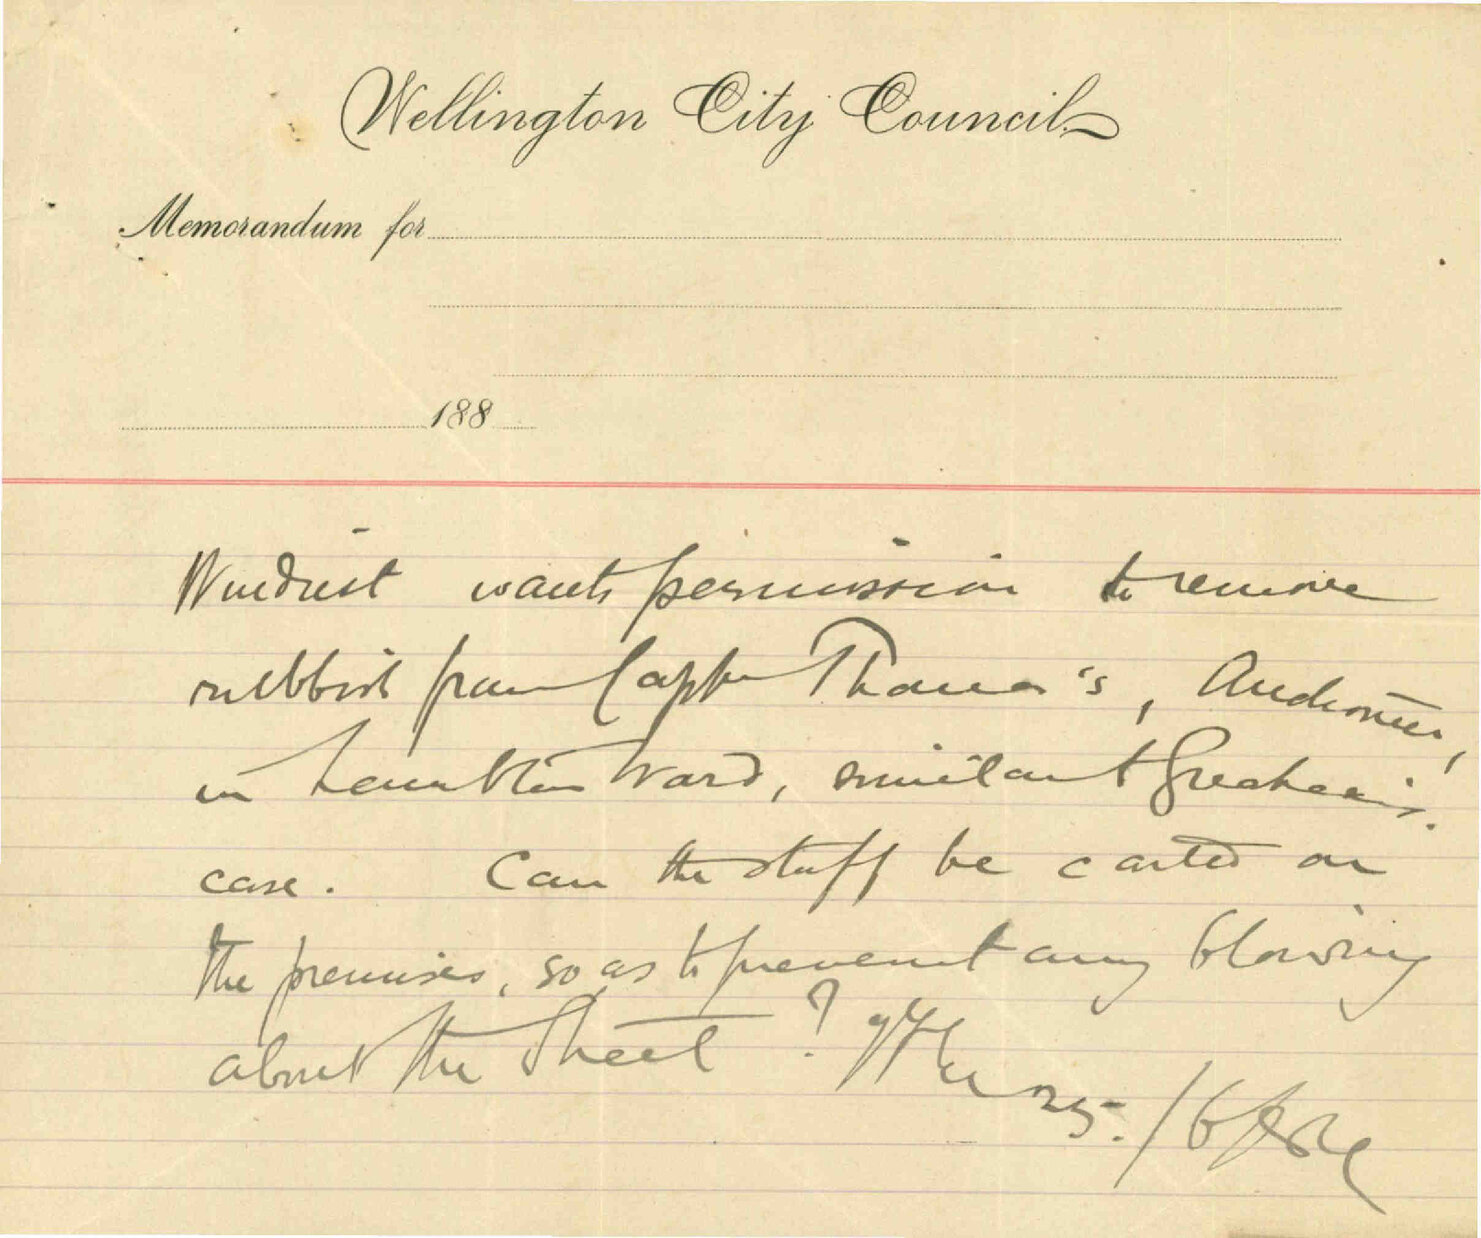 Wellington City Council.
Memorandum for
188
wants permission to remove
rubbish from Capt Thomas's, Auctioneer,
in Lambton Ward, similar to
case. Can the stuff be carted on
the premises, so as to prevent any blowing
about the Street ?